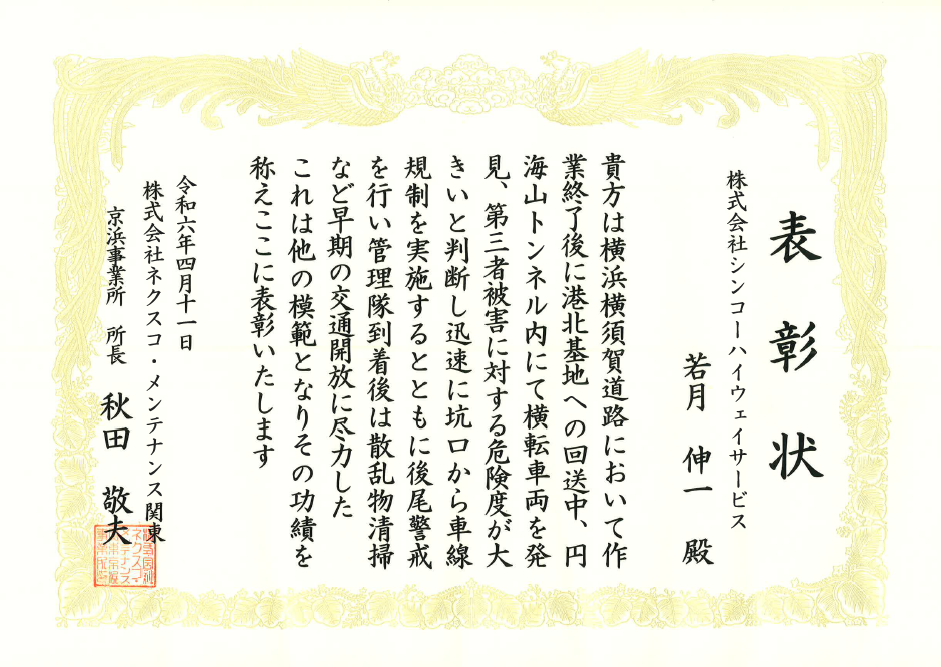 表彰状
株式会社シンコーハイウェイサービス
若月 伸一 殿
貴方は横浜横須賀道路において作
業終了後に港北基地への回送中、円
海山トンネル内にて横転車両を発
見、第三者被害に対する危険度が大
きいと判断し迅速に坑口から車線
規制を実施するとともに後尾警戒
を行い管理隊到着後は散乱物清掃
など早期の交通開放に尽力した
これは他の模範となりその功績を
称えここに表彰いたします
令和六年四月十一日
株式会社ネクスコ・メンテナンス関東
京浜事業所 所長 秋田 敬夫